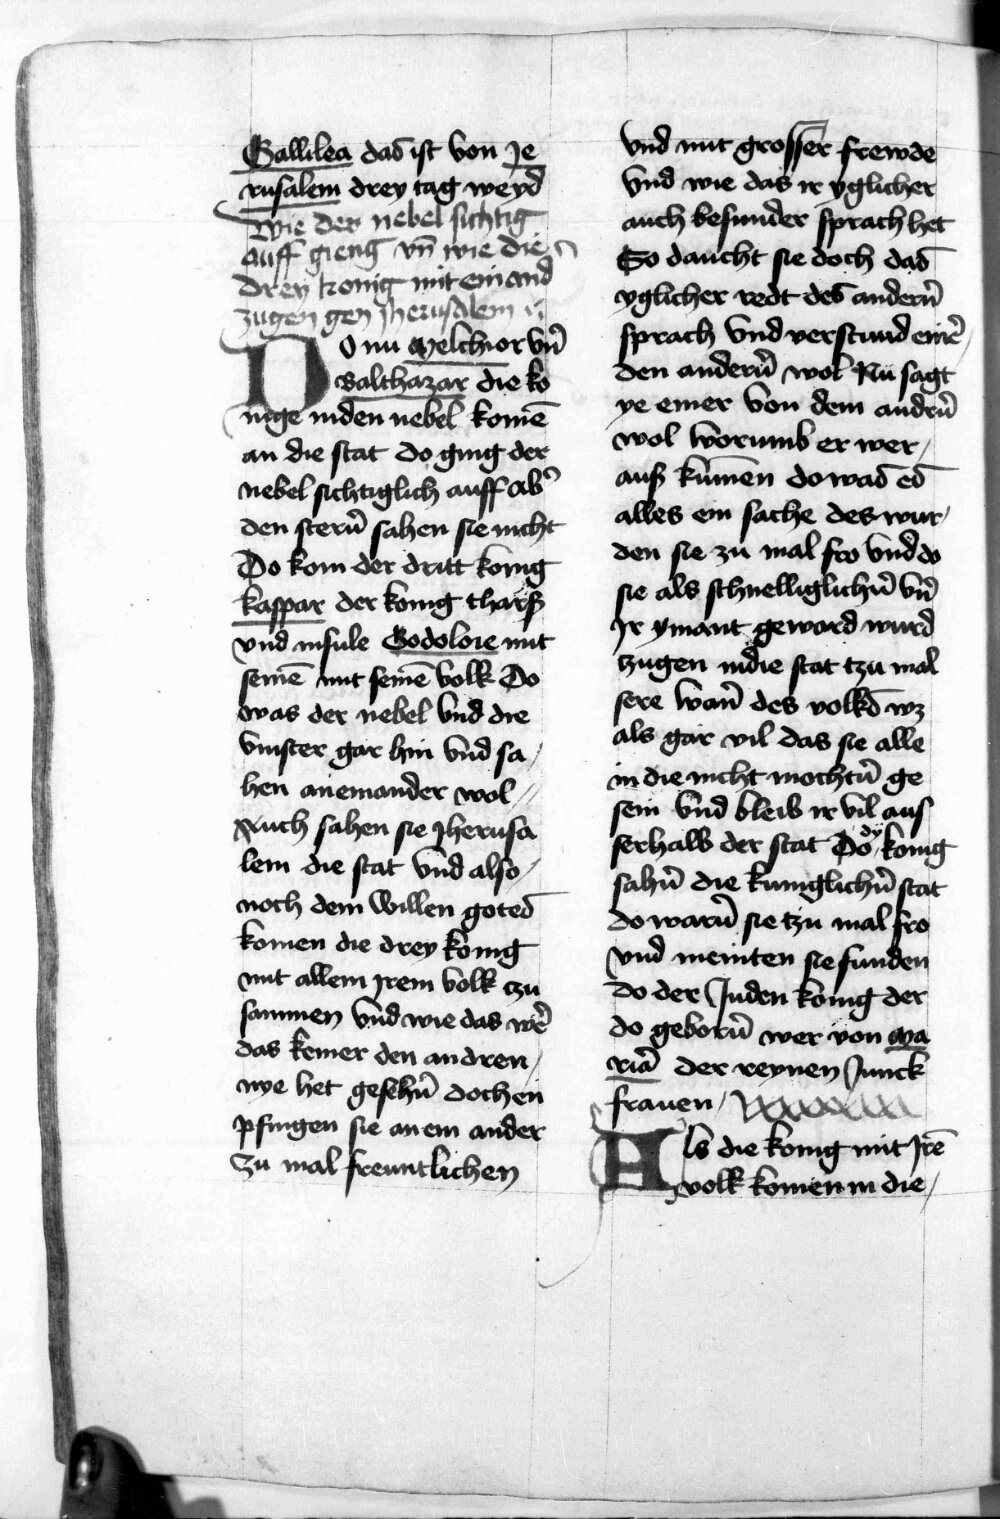 Gallilea das ist von Je
rusalem drey tag weyd
wie der nebel sichtig
auff gieng vn̄ wie die
drey konig mit einand
zugen gen Jherusalem
DO nu Melchior vn̄
Balthazar die ko
nige in den nebel komē
an die stat do ging der
nebel sichtiglich auff ab̾
den stern̄ sahen sie nicht
Do kom der dritt konig
kaspar der konig tharß
vnd insule Godolore mit
seinē mit seinē volk Do
was der nebel vnd die
vinster gar hin vnd sa/
hen aneinander wol //
Auch sahen sie Jherusa
lem die stat vnd also/
noch dem willen gotes
komen die drey konig
mit allem irem volk tzu
sammen vnd wie das wē
das keiner den andren/
nye het gesehn̄ doch en
pfingen sie an ein ander
zu mal freuntlichen
vnd mit grosser frewde
vnd wie das ir yglicher
auch besunder sprach het
So daucht sie doch das
yglicher redt des andern̄
sprach vnd verstund einē/
den andern̄ wol Nu sagt
ye einer von dem andrn̄
wol worumb er wer/
auß kumen do was es
alles ein sache des wur/
den sie zu mal fro vnd do
sie als schnelliglichn̄ vn̄
Ir ymant geward wurd
tzugen in die stat tzu mal
sere wan̄ des volks wz
als gar vil das sie alle
in die nicht mochtn̄ ge
sein vnd bleib ir vil aus
serhalb der stat Do dy konig
sahn̄ die kuniglichn̄ stat
do warn̄ sie tzu mal fro
vnd meinten sie funden
do der Juden konig der
do geborn̄ wer von Ma
riā der reynen Junck
frauen/
Als die konig mit Irē
volk komen in die/